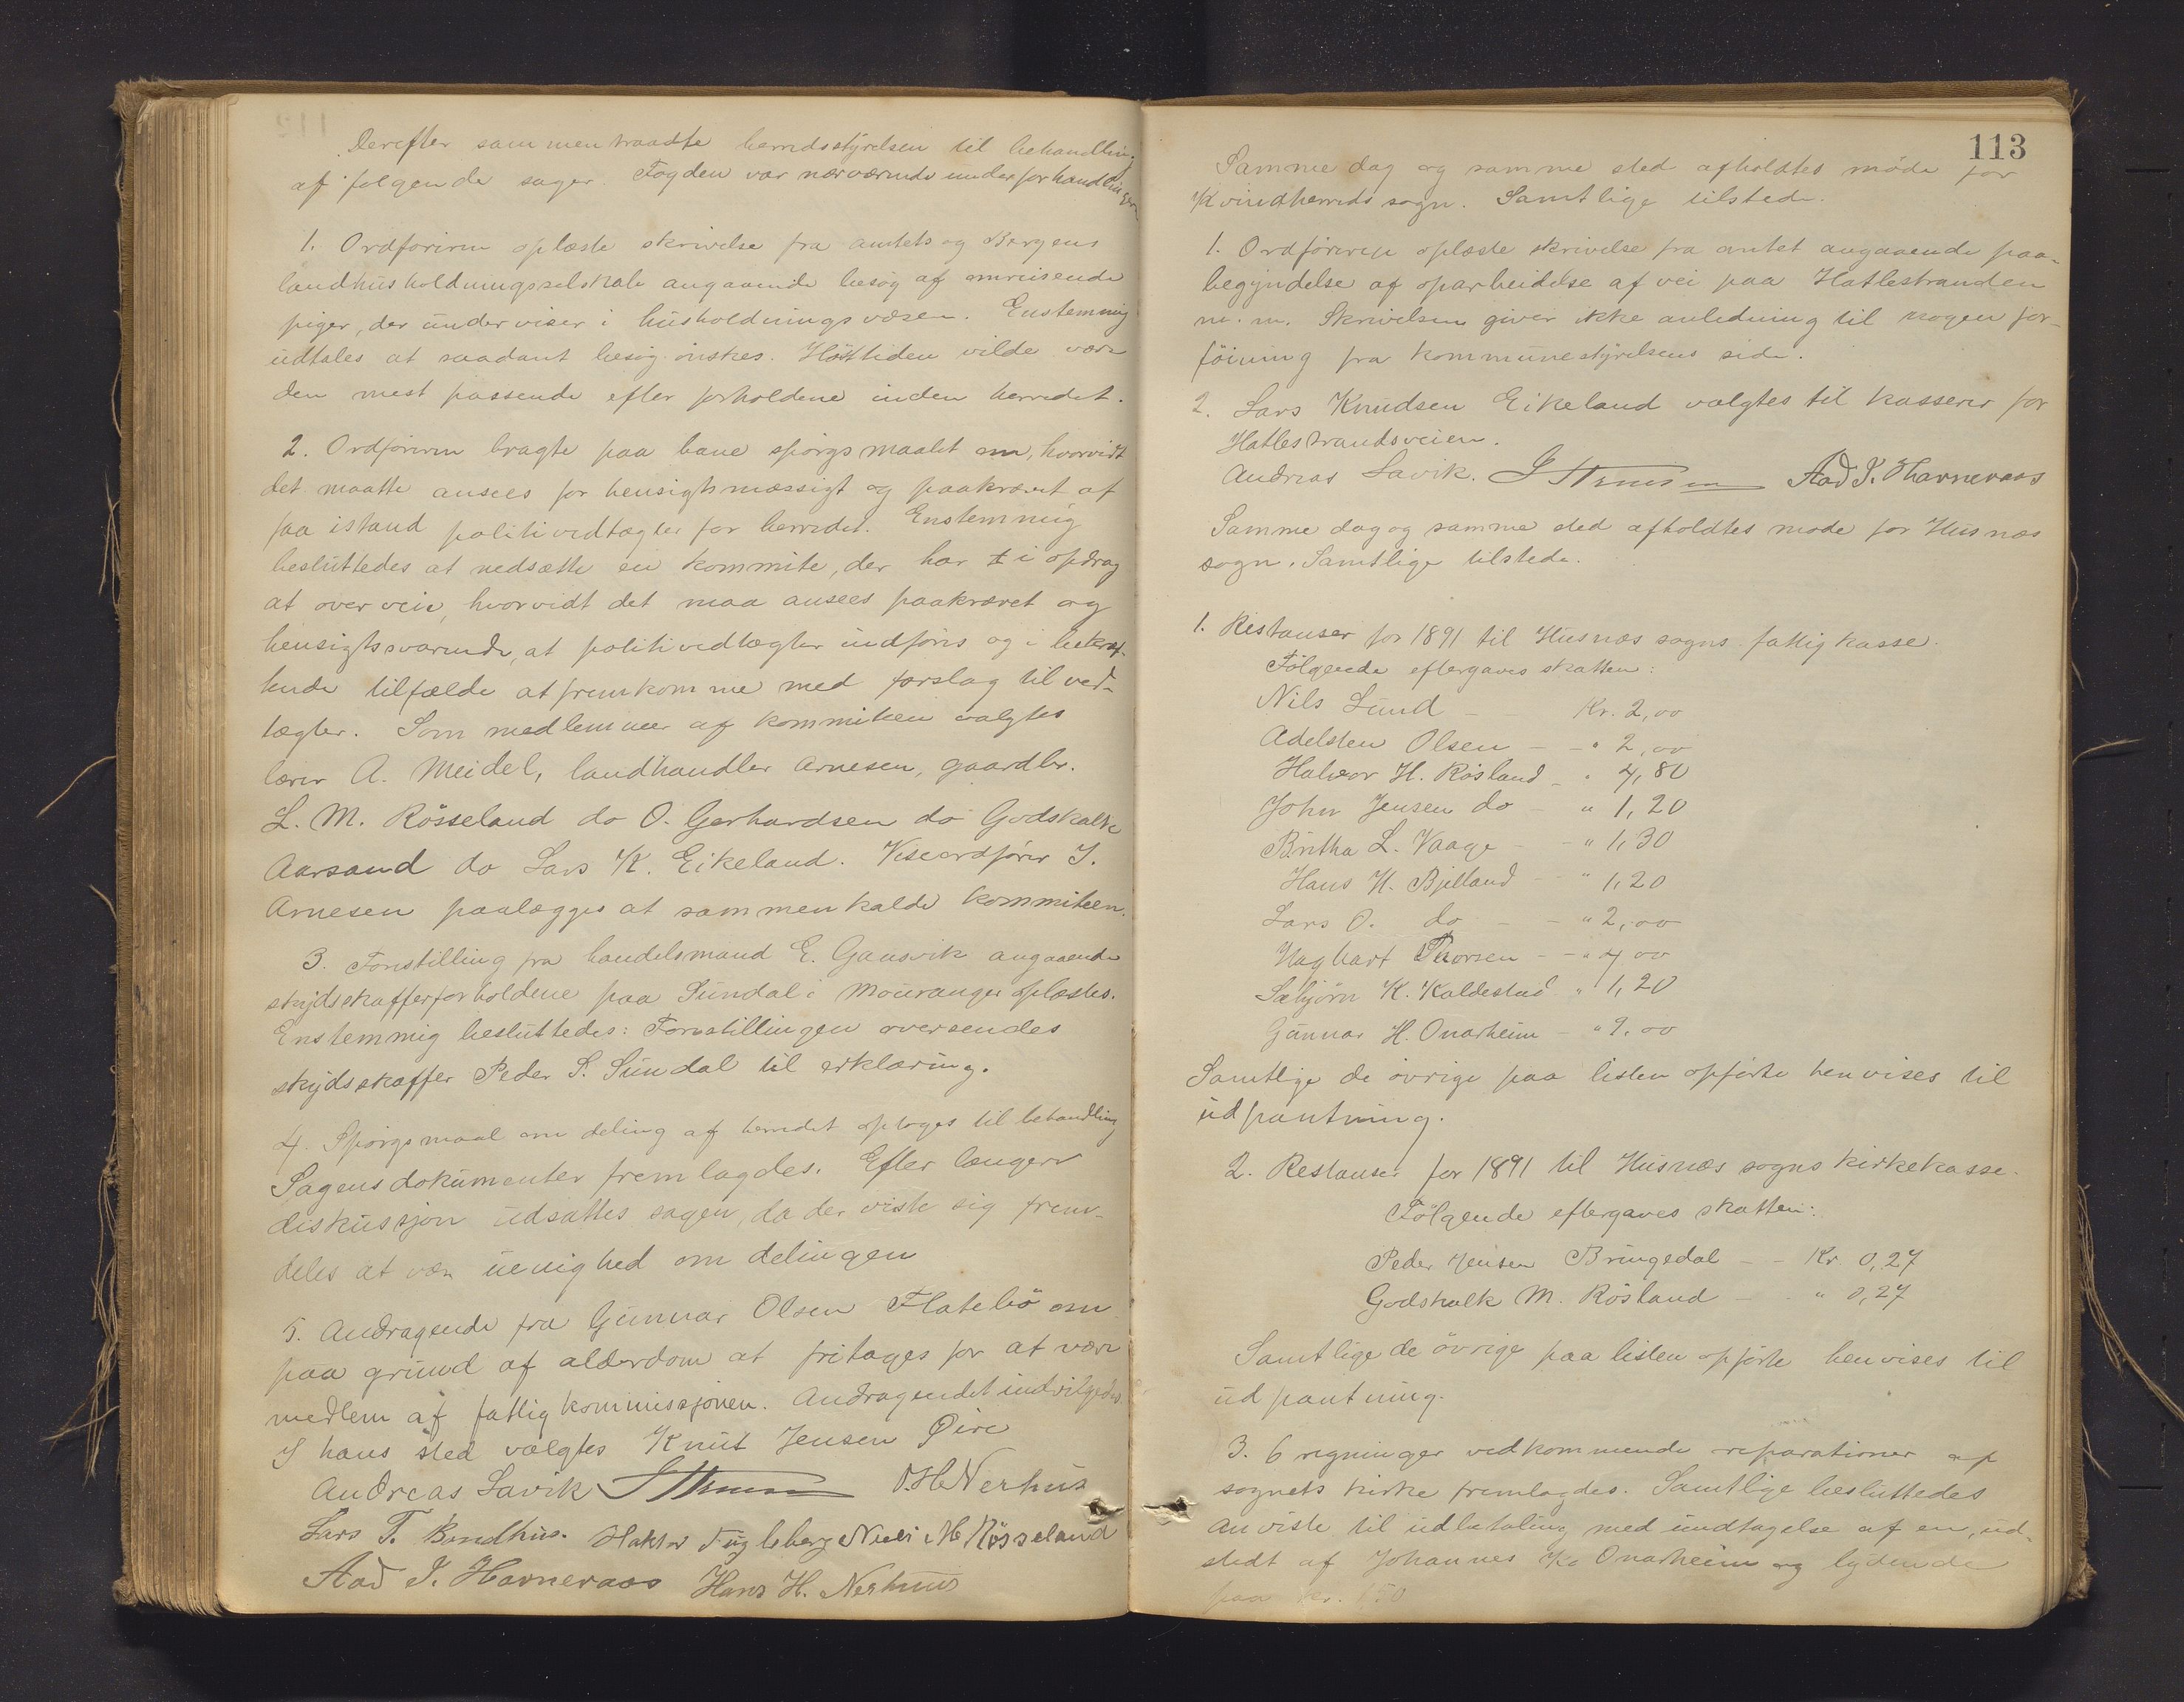 Derefter sammentraadte herredsstyrelsen til behandling
af følgende sager. Fogden var nærværende under forhandlingen
1. Ordføreren oplæste skrivelse fra amtets og Bergens
landhusholdningsselskab angaaende besøg af omreisende
piger, der underviser i husholdningsvæsen. Enstemmig
udtales at saadant besøg ønskes. Høsttiden vilde være
den mest passende efter forholdene inden herredet.
2. Ordføreren bragte paa bane spørgsmaalet om, hvorvidt
det maatte ansees for hensigtsmæssigt og paakrævet at
faa istand politivedtægter for herredet. Enstemmig
besluttedes at nedsætte en kommite, der har i opdrag
at overveie, hvorvidt det maa ansees paakrævet og
hensigtssvarende, at politivedtægter indføres og i bekræf-
tende tilfælde at fremkomme med forslag til ved-
tægter. Som medlemmer af kommiteen valgtes
lærer A. Meidel, landhandler Arnesen, gaardbr.
L. M. Rösseland do O. Gerhardsen do Godskalk
Aarsand do Lars K. Eikeland. Viseordfører J.
Arnesen paalægges at sammenkalde kommiteen.
3. Forestilling fra handelsmand E. Gausvik angaaende
skydsskafferforholdene paa Sundal i Mouranger oplæstes.
Enstemmig besluttedes: Forestillingen oversendes
skydsskaffer Peder S. Sundal til erklæring.
4. Spørgsmaal om deling af herredet optoges til behandling
Sagens dokumenter fremlagdes. Efter længere
diskussjon udsattes sagen, da der viste sig frem-
deles at være uenighed om delingen
5. Andragende fra Gunnar Olsen Flatebö om
paa grund af alderdom at fritages for at være
medlem af fattigkommissjonen. Andragendet indvilgedes.
I hans sted valgtes Knut Jensen Øire
Andreas Lavik O. H. Nerhus
Lars T. Bondhus. Haktor Fugleberg Niels M Rösseland
Aad J. Havneraas Hans H. Nerhuus
113
Samme dag og samme sted afholdtes møde for
Kvindherreds sogn. Samtlige tilstede.
1. Ordføreren oplæste skrivelse fra amtet angaaende paa-
begyndelse af oparbeidelse af vei paa Hatlestranden
m. m. Skrivelsen giver ikke anledning til nogen for-
föining fra kommunestyrelsens side.
2. Lars Knudsen Eikeland valgtes til kasserer for
Hatlestrandsveien.
Andreas Lavik. Aad J. Havneraas
Samme dag og samme sted afholdtes møde for Husnæs
sogn. Samtlige tilstede.
1. Restanser for 1891 til Husnæs sogns fattigkasse.
Følgende eftergaves skatten:
Nils Lund - Kr. 2,00
Adelsten Olsen - - " 2,00
Halvor H. Røsland - " 4,80
John Jensen do - " 1,20
Britha L. Vaage - - " 1,30
Hans H. Bjelland - - " 1,20
Lars O. do - - " 2,00
Hagbart Thorsen - - " 4 00
Sæbjörn K. Kaldestad " 1,20
Gunnar H. Onarheim - " 9,00
Samtlige de øvrige paa listen opførte henvises til
udpantning.
2. Restanser for 1891 til Husnæs sogns kirkekasse.
Følgende eftergaves skatten:
Peder Jensen Bringedal - - Kr. 0,27
Godskalk M. Røsland - - " 0,27
Samtlige de øvrige paa listen opførte henvises til
udpantning.
3. 6 regninger vedkommende reparationer af
sognets kirke fremlagdes. Samtlige besluttedes
anviste til udbetaling med undtagelse af en, ud-
stedt af Johannes K. Onarheim og lydende
paa kr. 1.50